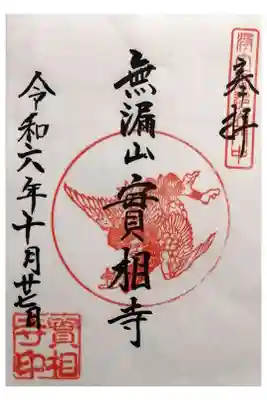 奉拝
無漏山實相寺
令和六年十月廿七日
實相寺印